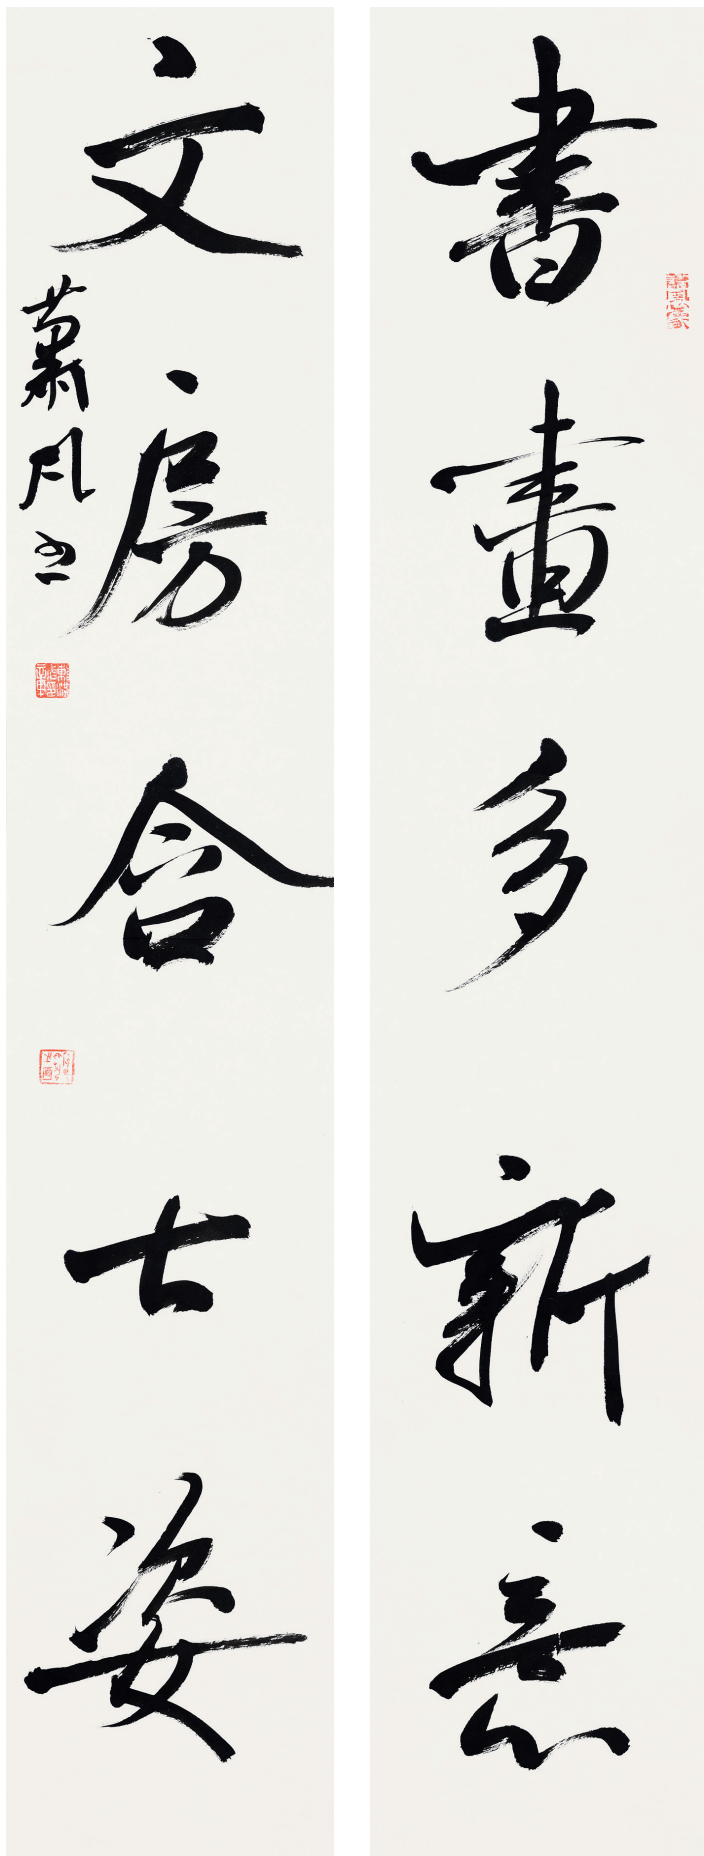 書畫多新意
文房含古姿
蕭風書